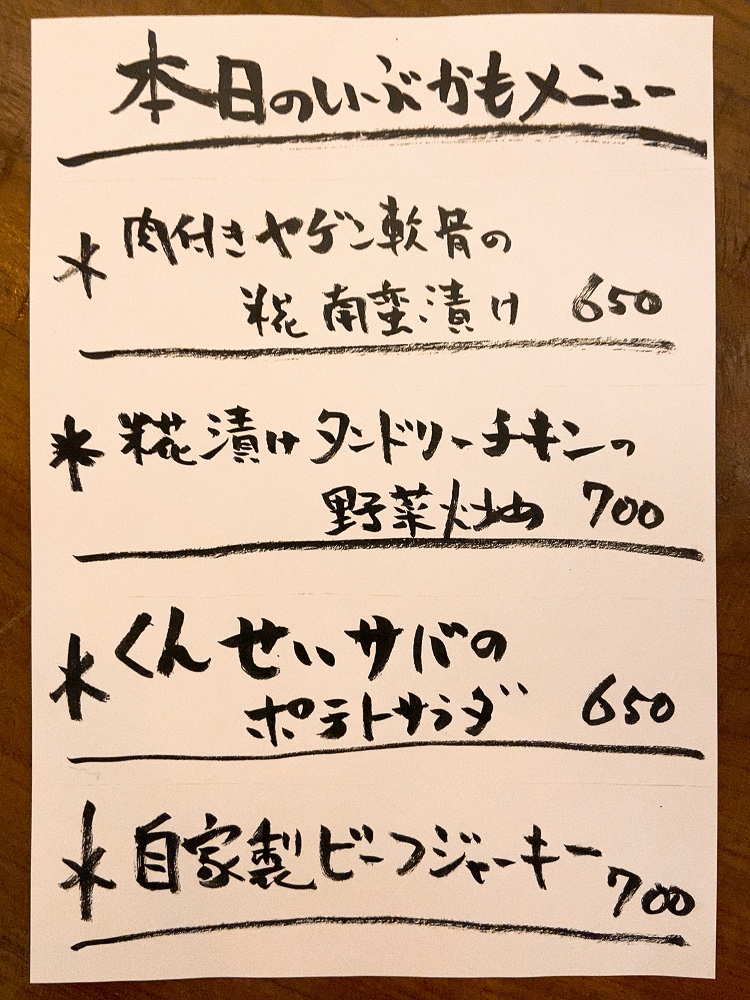 本日のいぶかもメニュー
* 肉付きヤゲン軟骨の
糀南蛮漬け 650
* 糀漬けタンドリーチキンの
野菜炒め 700
* くんせいサバの
ポテトサラダ 650
* 自家製ビーフジャーキー 700